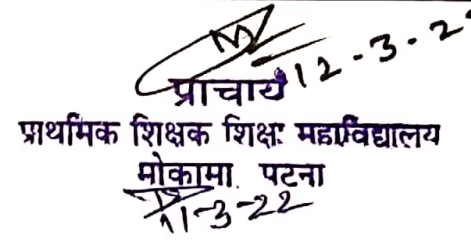 12-3-2
प्राचार्य
प्राथमिक शिक्षक शिक्षा महाविद्यालय
मोकामा, पटना
11-3-22